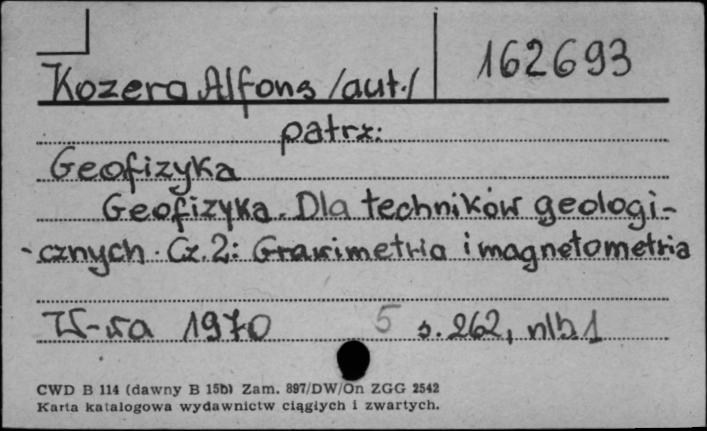 Kozera Alfons /aut./ 162693
patrz:
Geofizyka
Geofizyka. Dla techników geologi-
-cznych. Cz. 2: Grawimetria i magnetometria
W-wa 1970 5 s. 262, nlb 1
CWD B 114 (dawny B 15b) Zam. 897/DW/On ZGG 2542
Karta katalogowa wydawnictw ciągłych i zwartych.